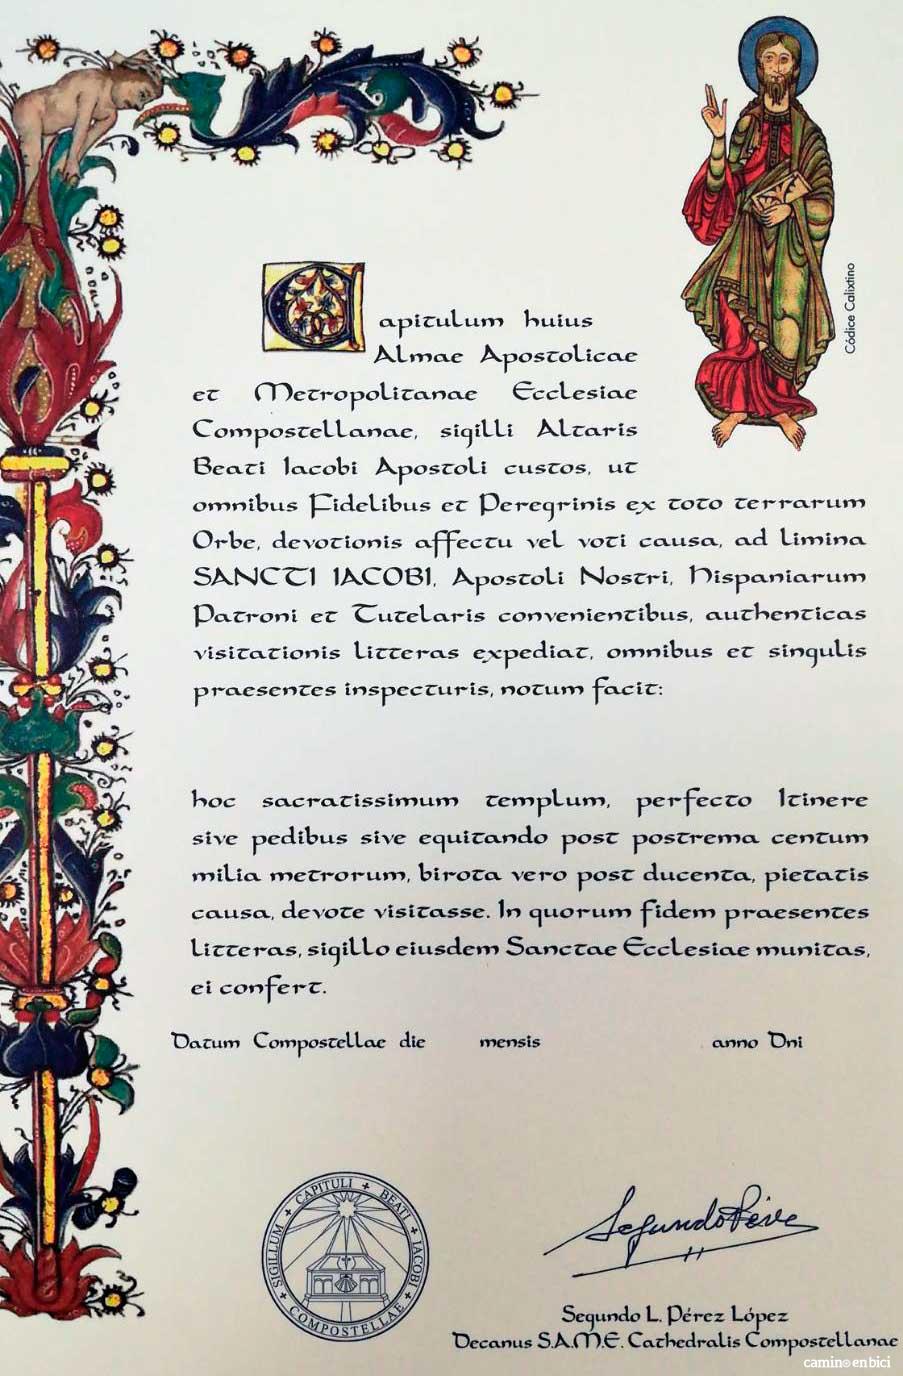 Capitulum huius
Almae Apostolicae
et Metropolitanae Ecclesiae
Compostellanae, sigilli Altaris
Beati Iacobi Apostoli custos, ut
omnibus Fidelibus et Peregrinis ex toto terrarum
Orbe, devotionis affectu vel voti causa, ad limina
SANCTI IACOBI, Apostoli Nostri, Hispaniarum
Patroni et Tutelaris convenientibus, authenticas
visitationis litteras expediat, omnibus et singulis
praesentes inspecturis, notum facit:
Códice Calixtino
hoc sacratissimum templum, perfecto Itinere
sive pedibus sive equitando post postrema centum
milia metrorum, birota vero post ducenta, pietatis
causa, devote visitasse. In quorum fidem praesentes
litteras, sigillo eiusdem Sanctae Ecclesiae munitas,
ei confert.
Datum Compostellae die mensis anno Dni
SIGILLUM + CAPITULI + BEATI + IACOBI + COMPOSTELLAE +
Segundo Pérez
Segundo L. Pérez López
Decanus S.A.M.E. Cathedralis Compostellanae
camino en bici